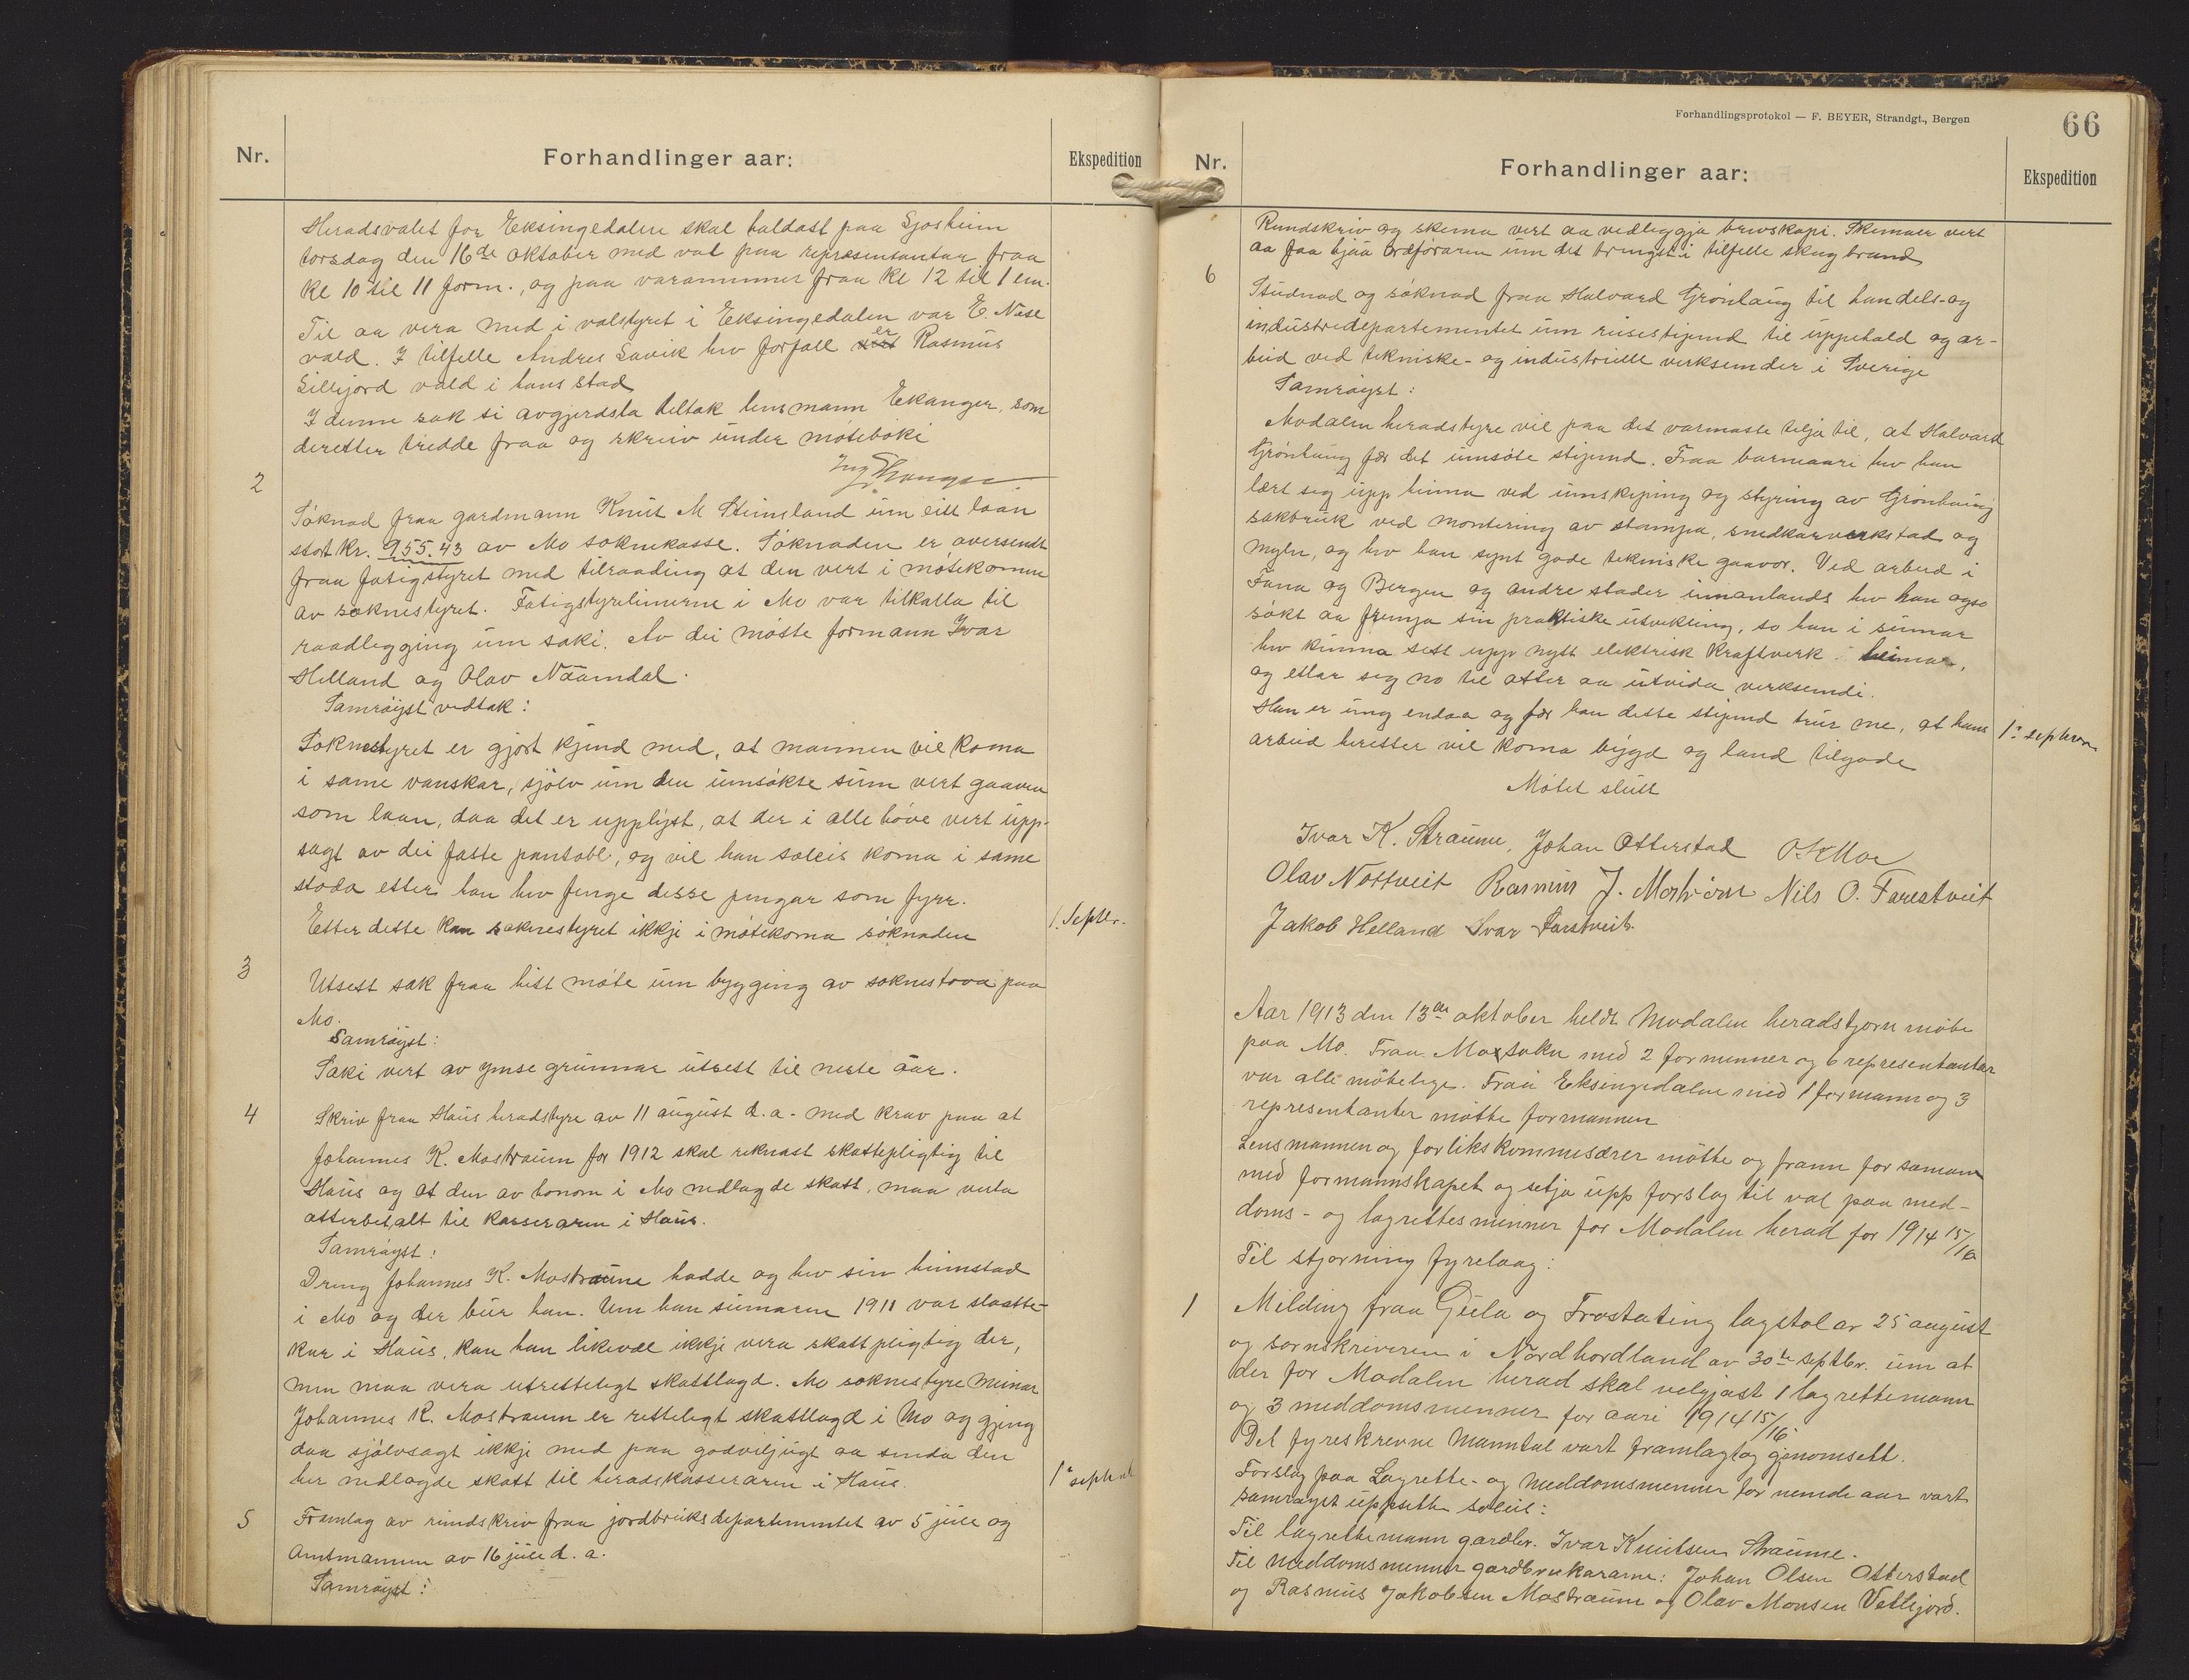 Nr.
Forhandlinger aar:
Ekspedition
Heradsvalet for Eksingedalen skal haldast paa Sjosheim
torsdag den 16de oktober med val paa representantar fraa
kl 10 til 11 form., og paa varamenner fraa kl 12 til 1 em.
Til aa vera med i valstyret i Eksingedalen var E. Nese
vald. I tilfelle Andres Lavik hev forfall vert er Rasmus
Lillejord vald i hans stad
I denne sak si avgjerdsla deltok lensmann Ekanger, som
deretter tredde fraa og skreiv under møteboki
Ekanger
2
Søknad fraa gardmann Knut M Steinsland um eitt laan
stort kr. 955.43 av Mo soknekasse. Søknaden er oversendt
fraa fatigstyret med tilraading at den vert i møtekomen
av soknestyret. Fatigstyrelimerne i Mo var tilkalla til
raadlegging um saki. Av dei møtte formann Ivar
Helland og Olav Nåamdal.
Samrøyst vedtak:
Soknestyret er gjort kjend med, at mannen vil koma
i same vanskar, sjølv um den umsøkte sum vert gaaven
som laan, daa det er upplyst, at der i alle høve vert upp-
sagt av dei faste pantobl, og vil han soleis koma i same
stoda etter han hev fenge desse pengar som fyrr.
Etter dette kan soknestyret ikkje i møtekoma søknaden
1. Septbr.
3
Utsett sak fraa hitt møte um bygging av soknestova paa
Mo.
Samrøyst:
Saki vert av ymse grunnar utsett til neste aar.
4
Skriv fraa Haus heradstyre av 11 august d.a. med krav paa at
Johannes K. Mostraum for 1912 skal reknast skattepligtig til
Haus og at den av honom i Mo nedlagde skatt, maa verta
atterbetalt til kasseraren i Haus.
Samrøyst:
Dreng Johannes K. Mostraume hadde og hev sin heimstad
i Mo og der bur han. Um han sumaren 1911 var slaatte-
kar i Haus, kan han likevæl ikkje vera skattpligtig der,
men maa vera utretteligt skattlagd. Mo soknestyre meinar
Johannes K. Mostraum er retteligt skattlagd i Mo og gjeng
daa sjølvsagt ikkje med paa godviljugt aa senda den
her nedlagde skatt til heradskasseraren i Haus.
5
Framlag av rundskriv fraa jordbruksdepartementet av 5 jule og
Amtmannen av 16 jule d. a.
Samrøyst:
Forhandlingsprotokol — F. BEYER, Strandgt., Bergen
66
Nr.
Forhandlinger aar:
Ekspedition
Rundskriv og skema vert aa vedleggja brevskapi. Skemaer vert
aa faa hjaa ordføraren um det trengst i tilfelle skogbrand
6
Studnad og søknad fraa Halvard Grønhaug til handels- og
industridepartementet um reisestipend til upphald og ar-
beid ved tekniske- og industrielle verksemder i Sverige
Samrøyst:
Modalen heradstyre vil paa det varmaste telja til, at Halvard
Grønhaug fær det umsøte stipend. Fraa barneaari hev han
lært seg upp heima ved umskiping og styring av Grønhaug
sakbruk ved montering av stampa, snedkarverkstad og
myln, og hev han synt gode tekniske gaavor. Ved arbeid i
Fana og Bergen og andre stader innanlands hev han ogso
søkt aa fremja sin praktiske utvikling, so han i sumar
hev kunna sett upp nytt elektrisk kraftverk heima,
og etlar seg no til atter aa utvida verksemdi.
Han er ung endaa og fær han dette stipend trur me, at hans
arbeid heretter vil koma bygd og land tilgode
Møtet slutt
Ivar K. Straume, Johan Otterstad O. K Moe
Olav Nottveit Rasmus J. Mostraum Nils O. Farestveit
Jakob Helland Ivar Farestveit
Aar 1913 den 13de oktober heldt Modalen heradstjorn møte
paa Mo. Fraa Mo sokn med 2 formenner og 6 representantar
var alle møtelege. Fraa Eksingedalen med 1 formann og 3
representanter møtte formannen
Lensmannen og forlikskommisærer møtte og fram for saman
med formannskapet og setja upp forslag til val paa med-
doms- og lagrettesmenner for Modalen herad for 1914 15/16
Til stjorning fyrelaag:
1
Melding fraa Gula og Frostating lagstol av 25 august
og sornskriveren i Nordhordland av 30te septbr. um at
der for Modalen herad skal veljast 1 lagrettemann
og 3 meddomsmenner for aari 1914 15/16
Det fyreskrevne Manntal vart framlagt og gjenomsett.
Forslag paa Lagrette- og meddomsmenner for nemde aar vart
samrøyst uppsette soleis:
Til lagrettemann gardbr. Ivar Knutsen Straume.
Til Meddomsmenner gardbrukararne: Johan Olsen Otterstad
og Rasmus Jakobsen Mostraum og Olav Monsen Vetlejord.